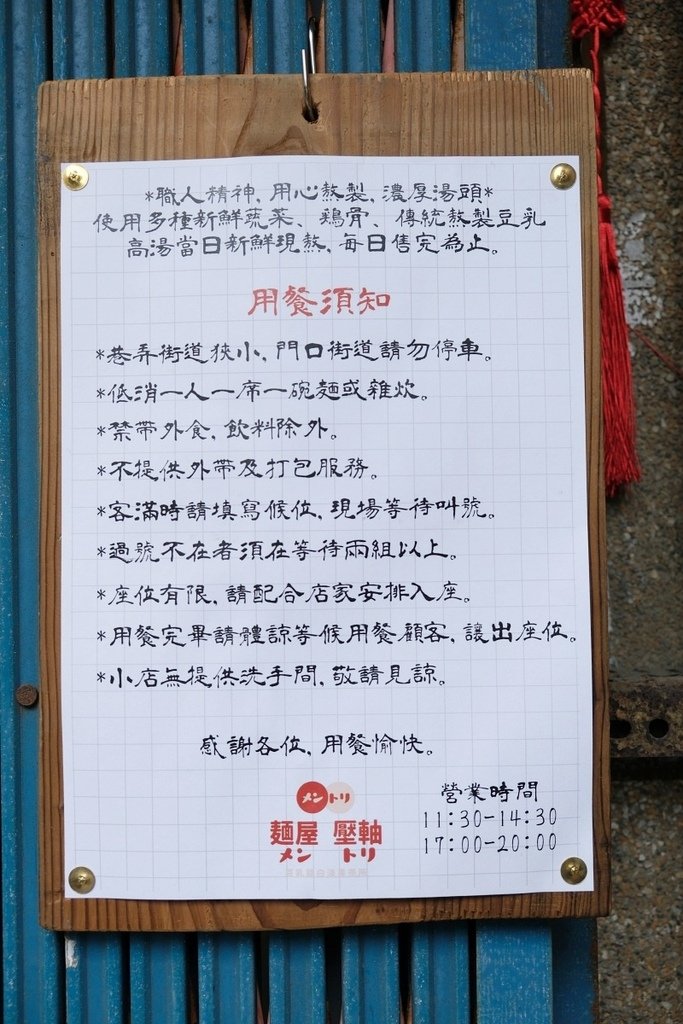 *職人精神，用心熬製，濃厚湯頭*
使用多種新鮮蔬菜、鷄骨、傳統熬製豆乳
高湯當日新鮮現熬，每日售完為止。
用餐須知
*巷弄街道狹小，門口街道請勿停車。
*低消一人一席一碗麵或雜炊。
*禁帶外食，飲料除外。
*不提供外帶及打包服務。
*客滿時請填寫候位，現場等待叫號。
*過號不在者須在等待兩組以上。
*座位有限，請配合店家安排入座。
*用餐完畢請體諒等候用餐顧客，讓出座位。
*小店無提供洗手間，敬請見諒。
感謝各位，用餐愉快。
メントリ
麵屋 壓軸
メン トリ
營業時間
11:30-14:30
17:00-20:00